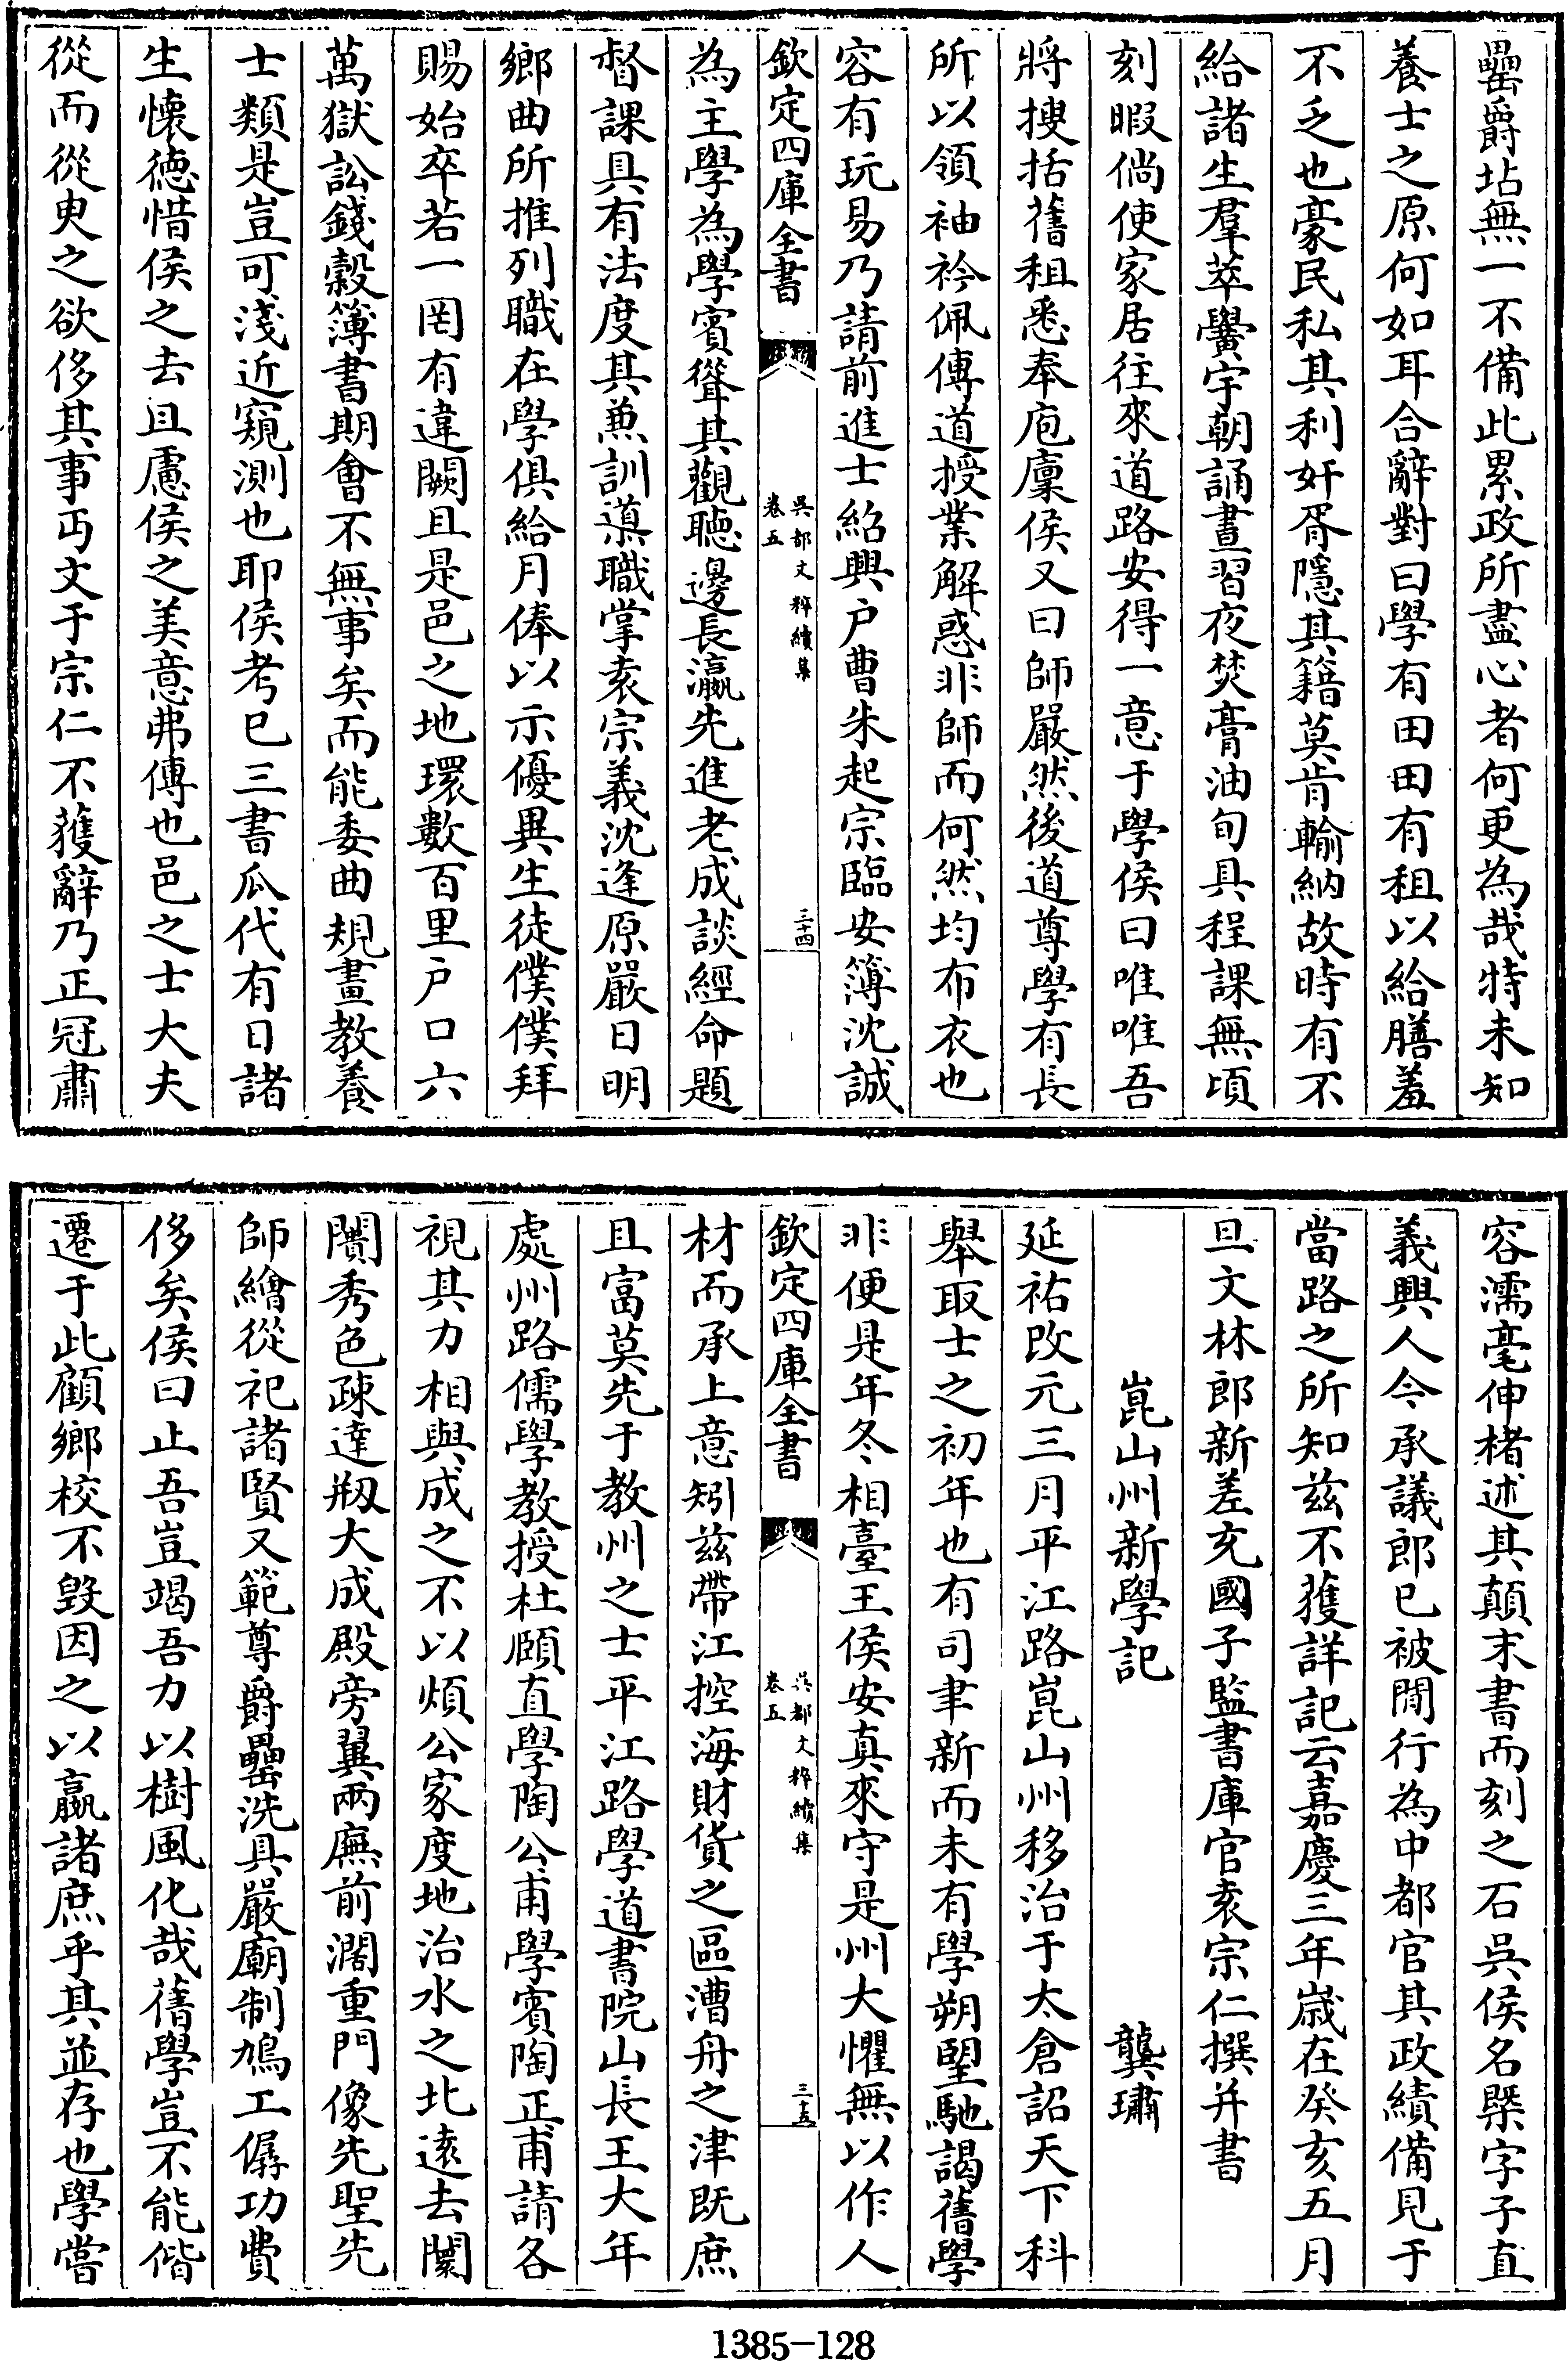 罍爵坫無一不備此累政所盡心者何更為哉特未知
養士之原何如耳合辭對曰學有田田有租以給膳羞
不乏也豪民私其利奸胥隱其籍莫肯輸納故時有不
給諸生羣萃黌宇朝誦晝習夜焚膏油旬具程課無頃
刻暇倘使家居往來道路安得一意于學侯曰唯唯吾
將搜括舊租悉奉庖廩侯又曰師嚴然後道尊學有長
所以領袖衿佩傳道授業解惑非師而何然均布衣也
容有玩易乃請前進士紹興户曹朱起宗臨安簿沈誠
欽定四庫全書
吳都文粹續集
卷五
三十四
為主學為學賓聳其觀聽邊長瀛先進老成談經命題
督課具有法度其兼訓遵職掌袁宗義沈逢原嚴日明
鄉曲所推列職在學俱給月俸以示優異生徒僕僕拜
賜始卒若一罔有違闕且是邑之地環數百里户口六
萬獄訟錢穀簿書期會不無事矣而能委曲規畫教養
士類是豈可淺近窺測也耶侯考已三書瓜代有日諸
生懷德惜侯之去且慮侯之美意弗傳也邑之士大夫
從而從臾之欲侈其事丏文于宗仁不獲辭乃正冠肅
容濡毫伸楮述其顛末書而刻之石吳侯名槩字子直
義興人今承議郎已被閒行為中都官其政績備見于
當路之所知兹不獲詳記云嘉慶三年歲在癸亥五月
旦文林郎新差充國子監書庫官袁宗仁撰并書
崑山州新學記
龔璛
延祐改元三月平江路崑山州移治于太倉詔天下科
舉取士之初年也有司聿新而未有學朔望馳謁舊學
非便是年冬相臺王侯安真來守是州大懼無以作人
欽定四庫全書
吳都文粹續集
卷五
三十五
材而承上意矧兹帶江控海財貨之區漕舟之津既庶
且富莫先于教州之士平江路學道書院山長王大年
處州路儒學教授杜頤直學陶公甫學賓陶正甫請各
視其力相與成之不以煩公家度地治水之北遠去闤
闠秀色疎達剏大成殿旁翼兩廡前濶重門像先聖先
師繪從祀諸賢又範尊爵罍洗具嚴廟制鳩工僝功費
侈矣侯曰止吾豈竭吾力以樹風化哉舊學豈不能偕
遷于此顧鄉校不毁因之以嬴諸庶乎其並存也學嘗
1385-128